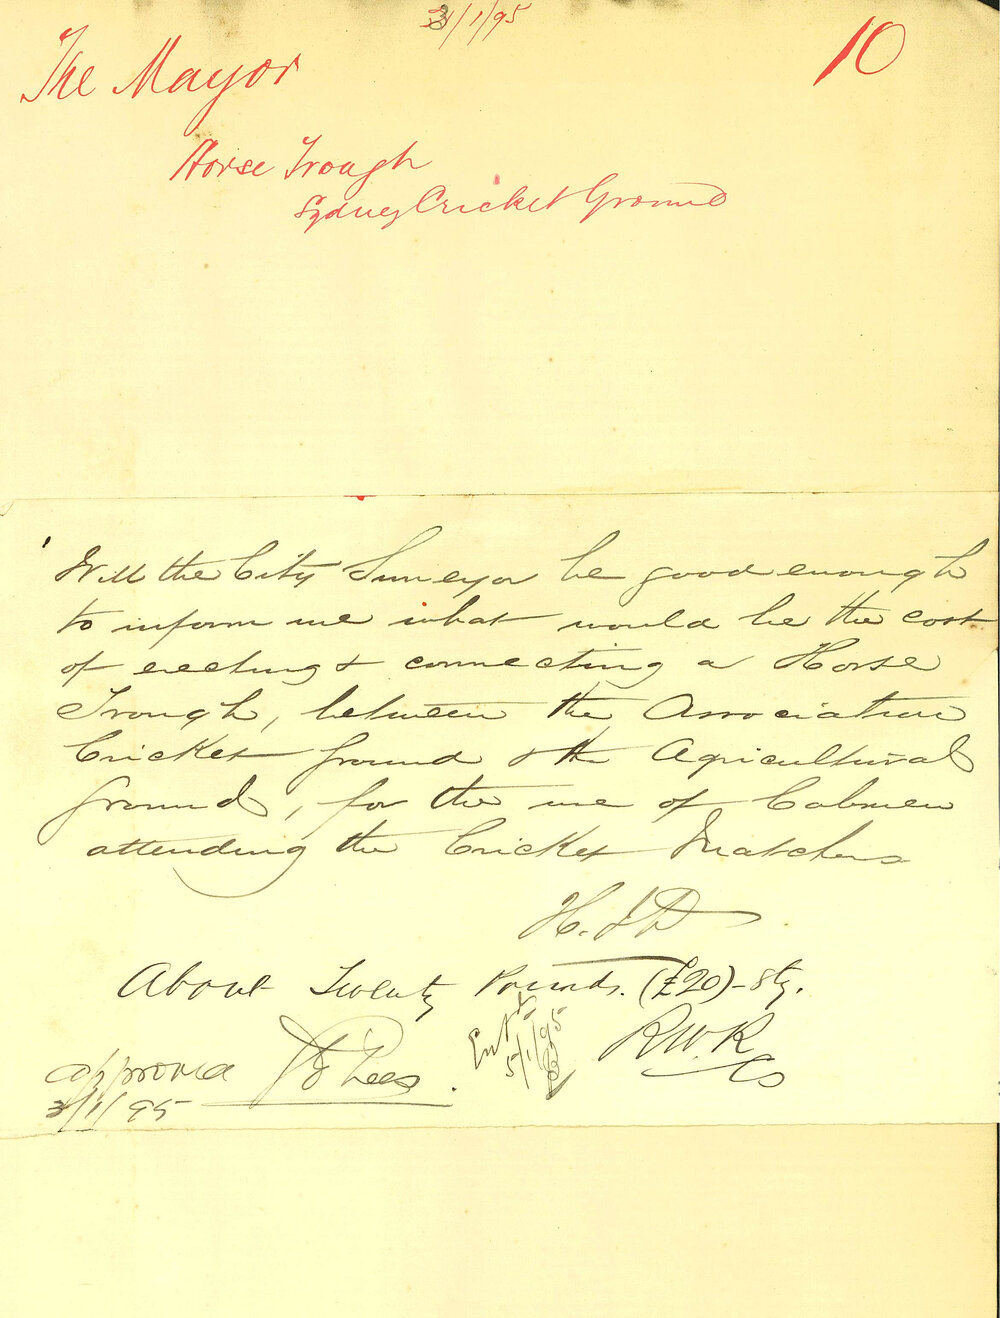 3/1/95
10
The Mayor
Horse Trough
Sydney Cricket Ground
Will the City Surveyor be good enough
to inform me what would be the cost
of erecting & connecting a Horse
Trough, between the Association
Cricket Ground & the Agricultural
Ground, for the use of Cabmen
attending the Cricket Matches
H. J. D
About Twenty Pounds. (£20) - Stg.
R W R
Entd
5/1/95
approved
3/1/95